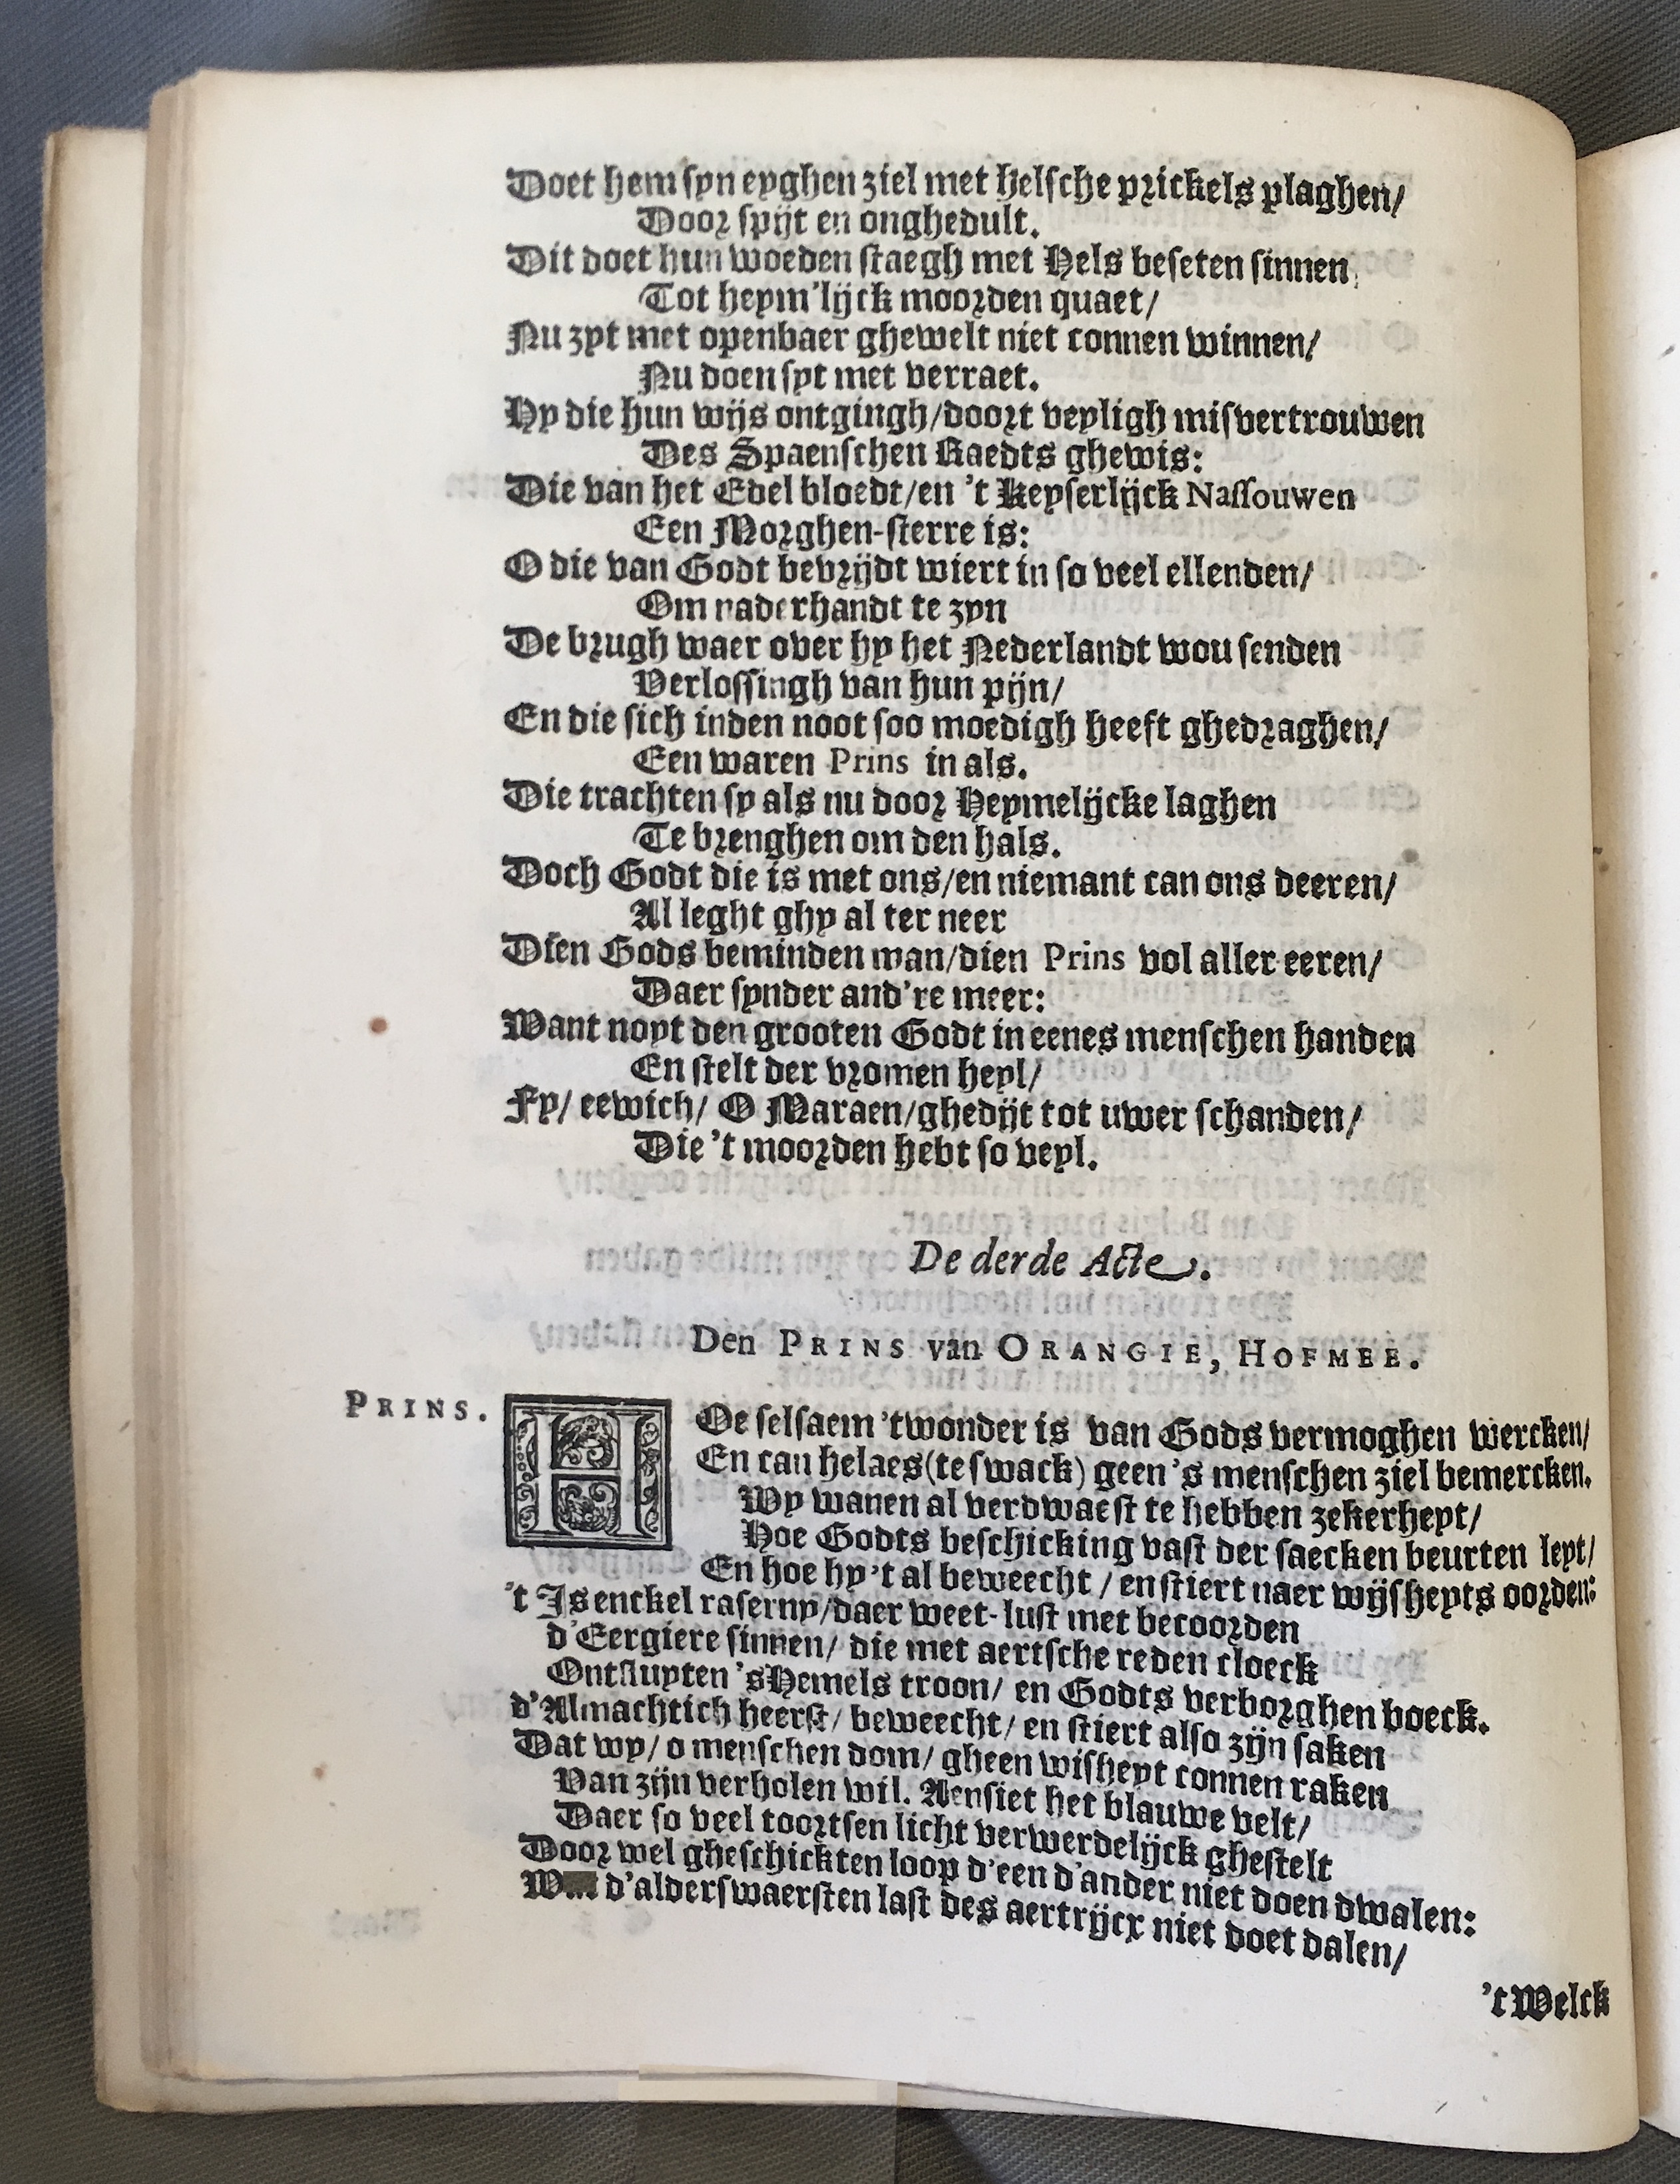 Doet hem syn eyghen ziel met helsche prickels plaghen/
Door spijt en onghedult.
Dit doet hun woeden staegh met Hels beseten sinnen,
Tot heym'lijck moorden quaet/
Nu zyt met openbaer ghewelt niet connen winnen/
Nu doen syt met verraet.
Hy die hun wijs ontgingh/doort veyligh misvertrouwen
Des Spaenschen Raedts ghewis:
Die van het Edel bloedt/en 't Keyserlijck Nassouwen
Een Morghen-sterre is:
O die van Godt bevrijdt wiert in so veel ellenden/
Om naderhandt te zyn
De brugh waer over hy het Nederlandt wou senden
Verlossingh van hun pijn/
En die sich inden noot soo moedigh heeft ghedraghen/
Een waren Prins in als.
Die trachten sy als nu door Heymelijcke laghen
Te brenghen om den hals.
Doch Godt die is met ons/en niemant can ons deeren/
Al leght ghy al ter neer
Dien Gods beminden man/dien Prins vol aller eeren/
Daer synder and're meer:
Want noyt den grooten Godt in eenes menschen handen
En stelt der vromen heyl/
Fy/ eewich/ O Maraen/ghedijt tot uwer schanden/
Die 't moorden hebt so veyl.
De derde Acte.
Den PRINS van ORANGIE, HOFMEE.
PRINS. HOe selsaem 'twonder is van Gods vermoghen wercken/
En can helaes (te swack) geen 's menschen ziel bemercken.
Wy wanen al verdwaest te hebben zekerheyt/
Hoe Godts beschicking vast der saecken beurten leyt/
En hoe hy 't al beweecht / en stiert naer wijsheyts oorden:
't Is enckel raserny/daer weet-lust met becoorden
d'Eergiere sinnen/ die met aertsche reden cloeck
Ontsluyten 's Hemels troon/ en Godts verborghen boeck.
d'Almachtich heerst/ beweecht/ en stiert also zijn saken
Dat wy/ o menschen dom/ gheen wisheyt connen raken
Van zijn verholen wil. Aensiet het blauwe velt/
Daer so veel toortsen licht verwerdelijck ghestelt
Door wel gheschickten loop d'een d'ander niet doen dwalen:
d'alderswaersten last des aertrijcx niet doet dalen/
't Welck